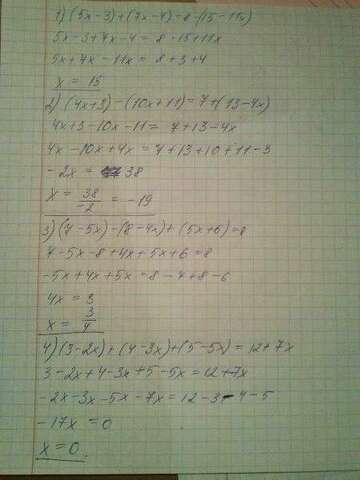 1) (5x-3)+(7x-4)=8-(15-11x)
5x-3+7x-4=8-15+11x
5x+7x-11x=8+3+4
x=15
2) (4x+3)-(10x+11)=7+(13-4x)
4x+3-10x-11=7+13-4x
4x-10x+4x=7+13+10+11-3
-2x=38
x=38/-2=-19
3) (7-5x)-(8-4x)+(5x+6)=8
7-5x-8+4x+5x+6=8
-5x+4x+5x=8-7+8-6
4x=3
x=3/4
4) (3-2x)+(4-3x)+(5-5x)=12+7x
3-2x+4-3x+5-5x=12+7x
-2x-3x-5x-7x=12-3-4-5
-17x=0
x=0.